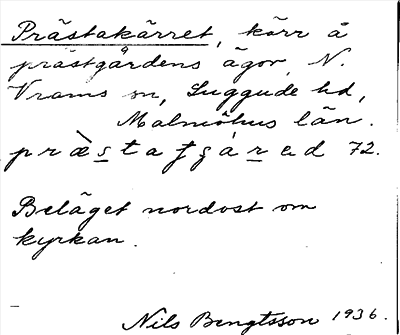 Prästakärret, kärr å
prästgårdens ägor, N.
Vrams sn, Luggude hd,
Malmöhus län.
Beläget nordost om
kyrkan.
Nils Bengtsson 1936.